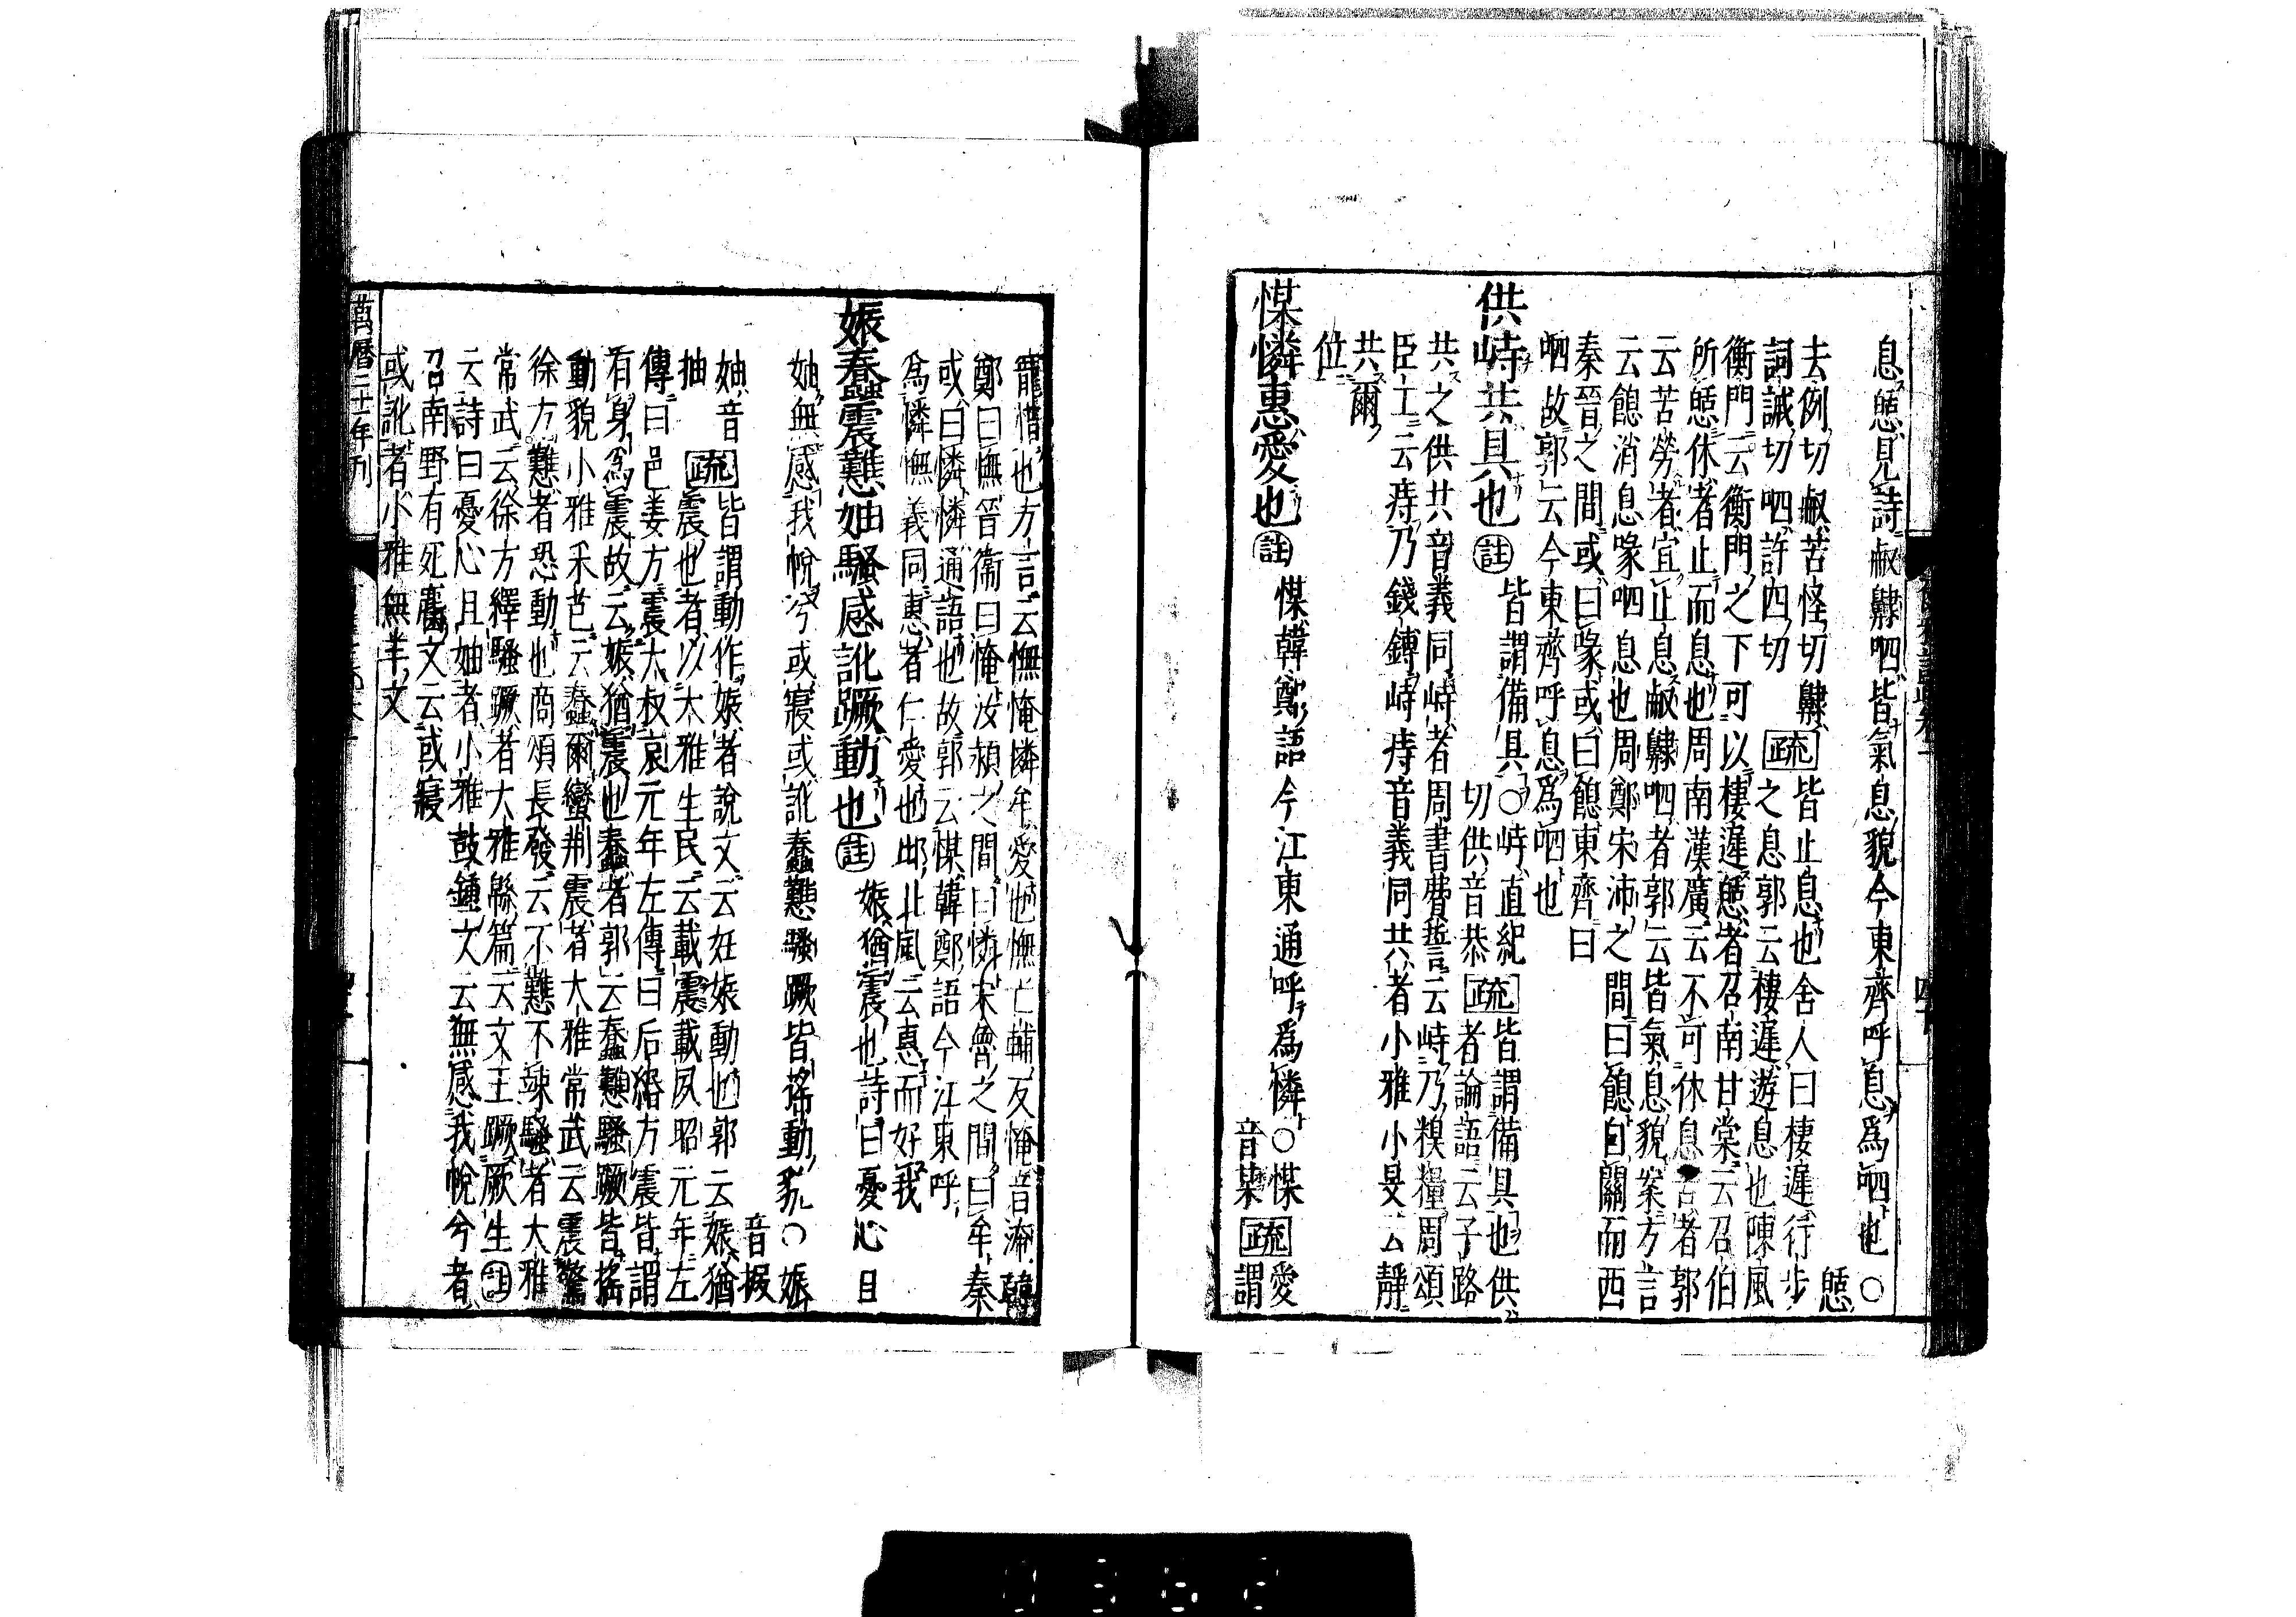 息憩見詩䶐齂呬皆氣息貌今東齊呼息爲呬也○憩
去例切䶐苦怪切齂
詞誡切呬許四切
疏
皆止息也舍人曰棲遲行步
之息郭云棲遲遊息也陳風
衡門云衡門之下可以棲遲憩者召南甘棠云召伯
所憩休者止而息也周南漢廣云不可休息苦者郭
云苦勞者宜止息䶐齂呬者郭云皆氣息貌案方言
云餲消息喙呬息也周鄭宋沛之間曰餲自關而西
秦晉之間或曰喙或曰餲東齊曰
呬故郭云今東齊呼息爲呬也
供峙共具也
註
皆謂備具○峙直紀
切供音恭
疏
皆謂備具也供
者論語云子路
共之供共音義同峙者周書費誓云峙乃糗糧周頌
臣工云庤乃錢鎛峙庤音義同共者小雅小旻云靜
共爾
位
煤憐惠愛也
註
煤韓鄭語今江東通呼爲憐○煤
音某
疏
愛
謂
寵惜也方言云憮㤿憐牟愛也憮亡輔反㤿音淹韓
鄭曰憮晉衞曰㤿汝潁之間曰憐宋魯之間曰牟秦
或曰憐憐通語也故郭云煤韓鄭語今江東呼
爲憐憮義同惠者仁愛也邶北風云惠而好我
娠蠢震戁妯騷感訛蹶動也
註
娠猶震也詩曰憂心且
妯無感我帨兮或寢或訛蠢戁騷蹶皆搖動貌○娠
音振
妯音
抽
疏
皆謂動作娠者說文云妊娠動也郭云娠猶
震也者以大雅生民云載震載夙昭元年左
傳曰邑姜方震大叔哀元年左傳曰后緡方震皆謂
有身爲震故云娠猶震也蠢者郭云蠢戁騷蹶皆搖
動貌小雅采芑云蠢爾蠻荆震者大雅常武云震驚
徐方戁者恐動也商頌長發云不戁不竦騷者大雅
常武云徐方繹騷蹶者大雅緜篇云文王蹶厥生註
云詩曰憂心且妯者小雅鼓鍾文云無感我帨兮者
召南野有死麕文云或寢
或訛者小雅無羊文
萬曆二十一年刊